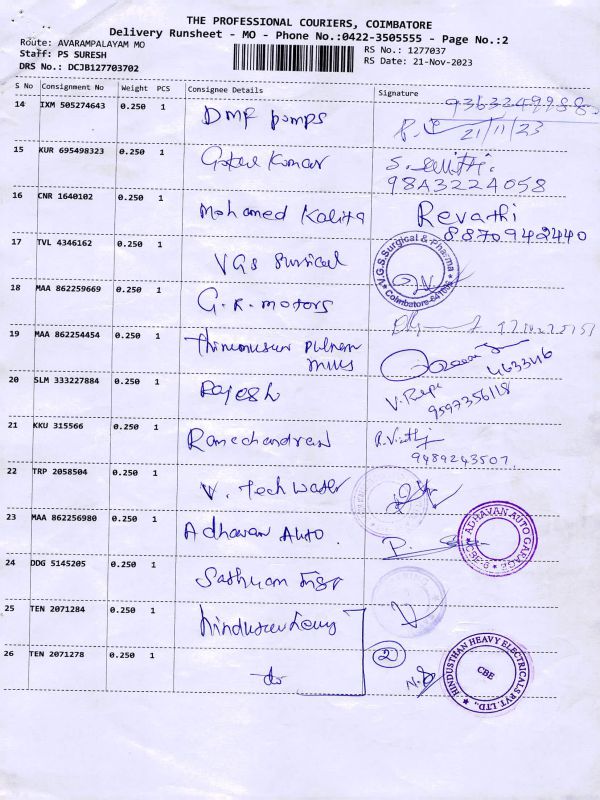 THE PROFESSIONAL COURIERS, COIMBATORE
Delivery Runsheet - MO - Phone No.:0422-3505555 - Page No.:2
Route: AVARAMPALAYAM MO
RS No.: 1277037
Staff: PS SURESH
RS Date: 21-Nov-2023
DRS No.: DCJB127703702
S No Consignment No Weight PCS Consignee Details Signature
14 IXM 505274643 0.250 1 DMR pumps
21/11/23
15 KUR 695498323 0.250 1 Gokul Kumar
98A3224058
16 CNR 1640102 0.250 1 Mohamed Kalifa Revathi
8870942440
17 TVL 4346162 0.250 1 VGS Surgical
V.G.S. Surgical & Pharma
Coimbatore
18 MAA 862259669 0.250 1 G.R. motors
19 MAA 862254454 0.250 1
mills
4633416
20 SLM 333227884 0.250 1 Rajesh V. Renu
9597356118
21 KKU 315566 0.250 1 Ramachandran
9489243507.
22 TRP 2058504 0.250 1 V. Tech Water
23 MAA 862256980 0.250 1 Adhavan Auto.
ADHAVAN AUTO GARAGE
CBE-6
24 DDG 5145205 0.250 1
25 TEN 2071284 0.250 1
26 TEN 2071278 0.250 1 do 2
HINDUSTHAN HEAVY ELECTRICALS PVT. LTD.,
CBE